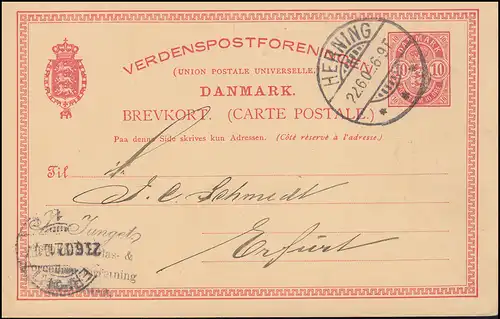 VERDENSPOSTFORENINGEN
(UNION POSTALE UNIVERSELLE.)
DANMARK.
BREVKORT. (CARTE POSTALE.)
Paa denne Side skrives kun Adressen. (Côté réservé à l'adresse.)
HERNING
22.6.02.6-9F
DANMARK
10 10
Til
J. C. Schmidt
Erfurt
Glas- &
23 6 02